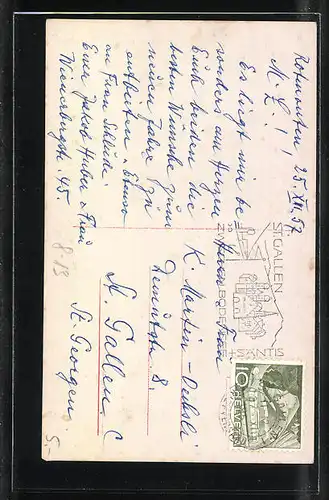 Rotmonten, 25. XII. 52
M. L.!
Es liegt mir be-
sonders am Herzen
Euch beiden die
besten Wünsche zum
neuen Jahre zu
entbieten. Ebenso
an Frau
Euer Jakob Huber & Frau
Wienerbergstr. 45.
Herrn & Frau
K. Martin-Oehsli
8.
St. Gallen C
St. Georgen.
ST. GALLEN
ZWISCHEN BODENSEE
SÄNTIS
HELVETIA
10
8-13
5.-